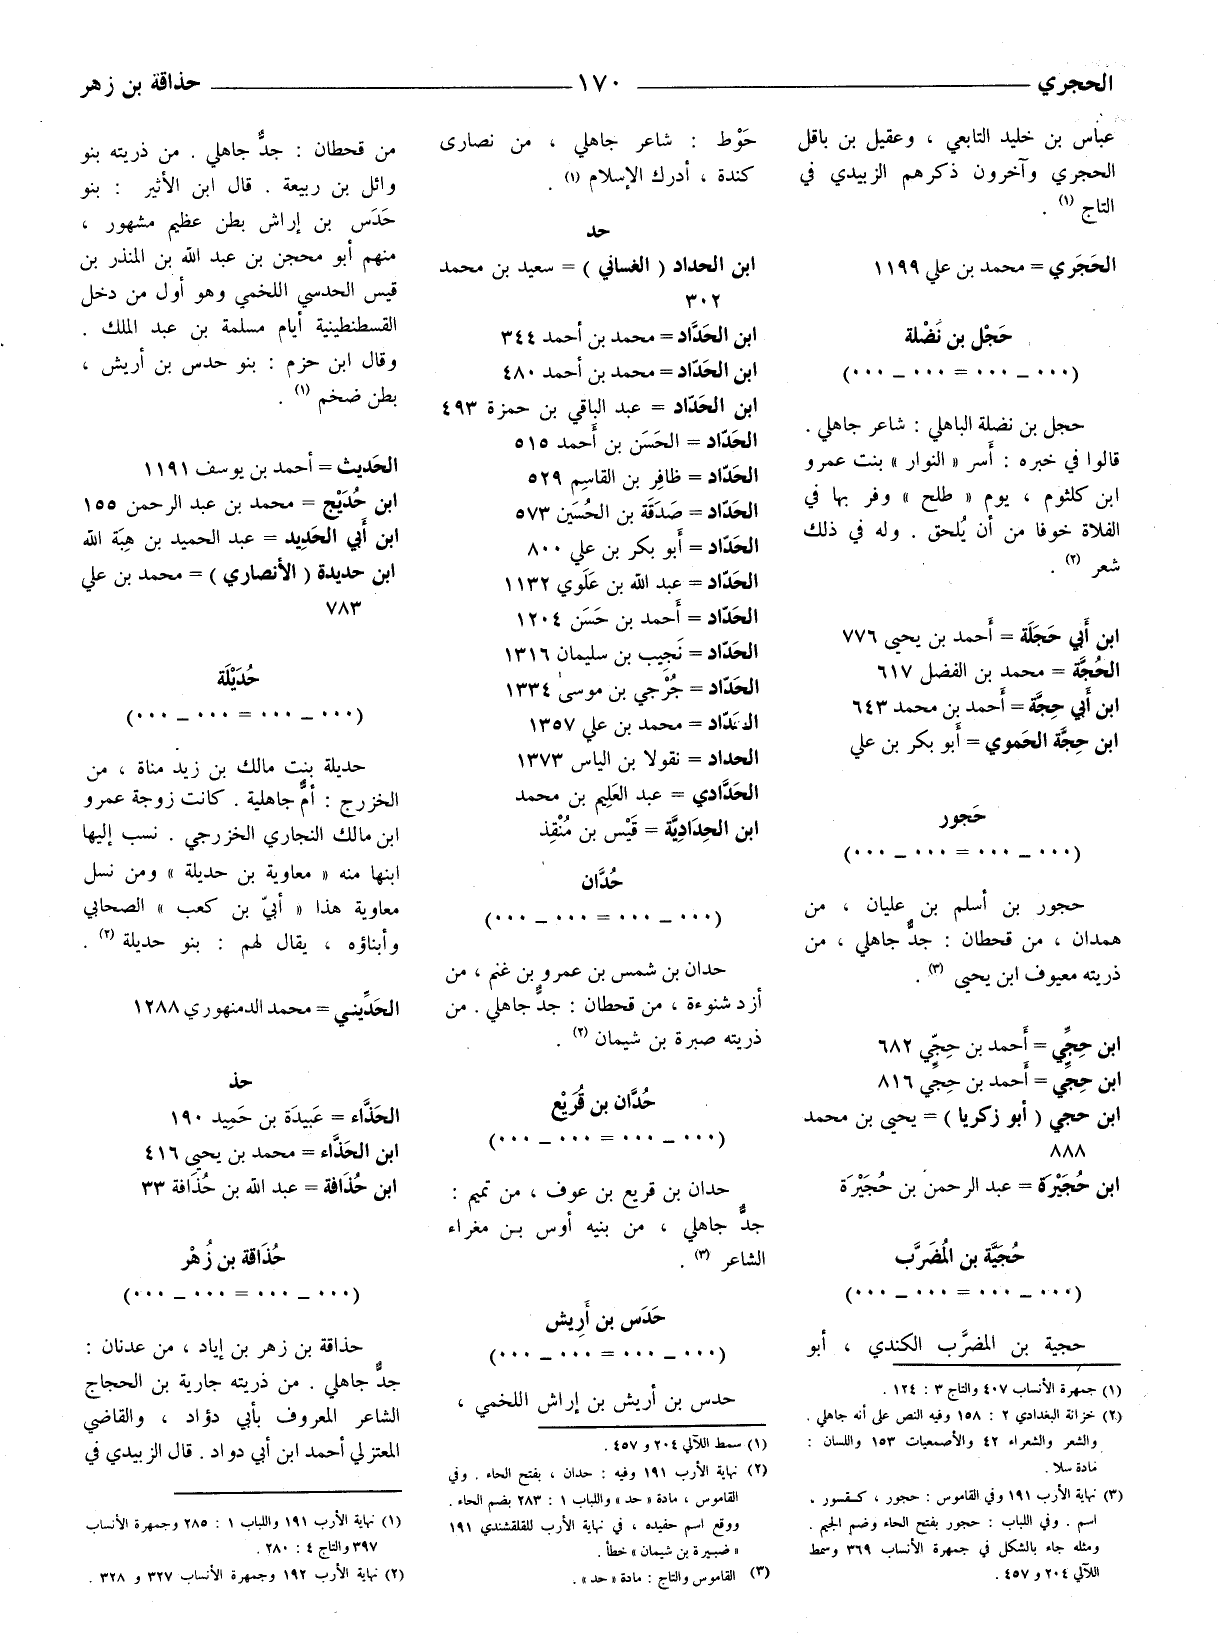 الحجري ١٧٠ حذاقة بن زهر
عباس بن خليد التابعي ، وعقيل بن باقل
الحجري وآخرون ذكرهم الزبيدي في
التاج (١) .
الحَجَري = محمد بن علي ١١٩٩
حَجْل بن نَضْلة
(٠٠٠ ــ ٠٠٠ = ٠٠٠ ــ ٠٠٠)
حجل بن نضلة الباهلي : شاعر جاهلي .
قالوا في خبره : أَسر « النوار » بنت عمرو
ابن كلثوم ، يوم « طلح » وفر بها في
الفلاة خوفا من أن يُلحق . وله في ذلك
شعر (٢) .
ابن أَبي حَجَلَة = أَحمد بن يحيى ٧٧٦
الحُجَّة = محمد بن الفضل ٦١٧
ابن أَبي حِجَّة = أَحمد بن محمد ٦٤٣
ابن حِجَّة الحَموي = أَبو بكر بن علي
حَجور
(٠٠٠ ــ ٠٠٠ = ٠٠٠ ــ ٠٠٠)
حجور بن أسلم بن عليان ، من
همدان ، من قحطان : جدٌّ جاهلي ، من
ذريته معيوف ابن يحيى (٣) .
ابن حِجِّي = أَحمد بن حِجِّي ٦٨٢
ابن حِجِّي = أَحمد بن حِجِّي ٨١٦
ابن حجي ( أبو زكريا ) = يحيى بن محمد
٨٨٨
ابن حُجَيْرَة = عبد الرحمن بن حُجَيْرَة
حُجَيَّة بن المُضَرَّب
(٠٠٠ ــ ٠٠٠ = ٠٠٠ ــ ٠٠٠)
حجية بن المضرَّب الكندي ، أبو
(١) جمهرة الأنساب ٤٠٧ والتاج ٣ : ١٢٤ .
(٢) خزانة البغدادي ٢ : ١٥٨ وفيه النص على أنه جاهلي .
والشعر والشعراء ٤٢ والأصمعيات ١٥٣ واللسان :
مادة سلا .
(٣) نهاية الأرب ١٩١ وفي القاموس : حجور ، كقسور ،
اسم . وفي اللباب : حجور بفتح الحاء وضم الجيم .
ومثله جاء بالشكل في جمهرة الأنساب ٣٦٩ وسمط
اللآلي ٢٠٤ و ٤٥٧ .
حَوْط : شاعر جاهلي ، من نصارى
كندة ، أدرك الإسلام (١) .
حد
ابن الحداد ( الغساني ) = سعيد بن محمد
٣٠٢
ابن الحَدَّاد = محمد بن أحمد ٣٤٤
ابن الحَدّاد = محمد بن أحمد ٤٨٠
ابن الحَدّاد = عبد الباقي بن حمزة ٤٩٣
الحَدّاد = الحَسَن بن أَحمد ٥١٥
الحَدّاد = ظافِر بن القاسِم ٥٢٩
الحَدّاد = صَدَقَة بن الحُسَين ٥٧٣
الحَدّاد = أَبو بكر بن علي ٨٠٠
الحَدّاد = عبد الله بن عَلَوي ١١٣٢
الحَدّاد = أَحمد بن حَسَن ١٢٠٤
الحَدّاد = نَجيب بن سليمان ١٣١٦
الحَدّاد = جُرْجي بن موسى ١٣٣٤
الحَدّاد = محمد بن علي ١٣٥٧
الحداد = نقولا بن الياس ١٣٧٣
الحَدَّادي = عبد العَلِيم بن محمد
ابن الحِدَادِيَّة = قَيْس بن مُنْقِذ
حُدَّان
(٠٠٠ ــ ٠٠٠ = ٠٠٠ ــ ٠٠٠)
حدان بن شمس بن عمرو بن غنم ، من
أزد شنوءة ، من قحطان : جدٌّ جاهلي . من
ذريته صبرة بن شيمان (٢) .
حُدَّان بن قُرَيْع
(٠٠٠ ــ ٠٠٠ = ٠٠٠ ــ ٠٠٠)
حدان بن قريع بن عوف ، من تميم :
جدٌّ جاهلي ، من بنيه أوس بن مغراء
الشاعر (٣) .
حَدَس بن أَرِيش
(٠٠٠ ــ ٠٠٠ = ٠٠٠ ــ ٠٠٠)
حدس بن أريش بن إراش اللخمي ،
(١) سمط اللآلي ٢٠٤ و ٤٥٧ .
(٢) نهاية الأرب ١٩١ وفيه : حدان ، بفتح الحاء . وفي
القاموس ، مادة « حد » واللباب ١ : ٢٨٣ بضم الحاء .
ووقع اسم حفيده ، في نهاية الأرب للقلقشندي ١٩١
« ضبيرة بن شيمان » خطأ .
(٣) القاموس والتاج : مادة « حد » .
من قحطان : جدٌّ جاهلي . من ذريته بنو
وائل بن ربيعة . قال ابن الأثير : بنو
حَدَس بن إراش بطن عظيم مشهور ،
منهم أبو محجن بن عبد الله بن المنذر بن
قيس الحدسي اللخمي وهو أول من دخل
القسطنطينية أيام مسلمة بن عبد الملك .
وقال ابن حزم : بنو حدس بن أريش ،
بطن ضخم (١) .
الحَديث = أحمد بن يوسف ١١٩١
ابن حُدَيْج = محمد بن عبد الرحمن ١٥٥
ابن أَبي الحَدِيد = عبد الحميد بن هِبَة الله
ابن حديدة ( الأنصاري ) = محمد بن علي
٧٨٣
حُدَيْلَة
(٠٠٠ ــ ٠٠٠ = ٠٠٠ ــ ٠٠٠)
حديلة بنت مالك بن زيد مناة ، من
الخزرج : أمٌّ جاهلية . كانت زوجة عمرو
ابن مالك النجاري الخزرجي . نسب إليها
ابنها منه « معاوية بن حديلة » ومن نسل
معاوية هذا « أبيّ بن كعب » الصحابي
وأبناؤه ، يقال لهم : بنو حديلة (٢) .
الحَدِّيني = محمد الدمنهوري ١٢٨٨
حذ
الحَذَّاء = عَبِيدَة بن حَمِيد ١٩٠
ابن الحَذَّاء = محمد بن يحيى ٤١٦
ابن حُذَافة = عبد الله بن حُذَافة ٣٣
حُذَاقة بن زُهْر
(٠٠٠ ــ ٠٠٠ = ٠٠٠ ــ ٠٠٠)
حذاقة بن زهر بن إياد ، من عدنان :
جدٌّ جاهلي . من ذريته جارية بن الحجاج
الشاعر المعروف بأبي دؤاد ، والقاضي
المعتزلي أحمد ابن أبي دواد . قال الزبيدي في
(١) نهاية الأرب ١٩١ واللباب ١ : ٢٨٥ وجمهرة الأنساب
٣٩٧ والتاج ٤ : ٢٨٠ .
(٢) نهاية الأرب ١٩٢ وجمهرة الأنساب ٣٢٧ و ٣٢٨ .